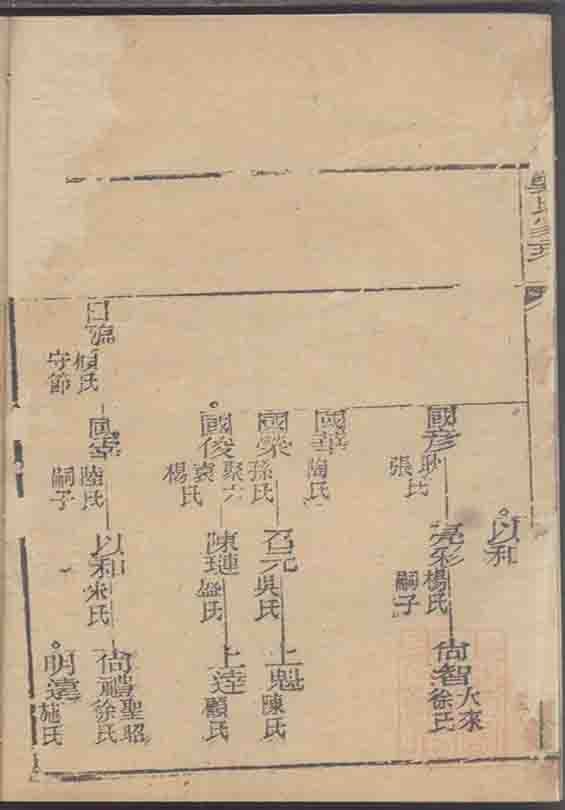 以和
國彥 耿氏 張氏
亮彩 楊氏 嗣子
尚智 大來 徐氏
國華 陶氏
國榮 孫氏
召元 吳氏
上魁 陳氏
國俊 聚六 袁氏 楊氏
陳璉 盛氏
上達 顧氏
傾氏 守節
陸氏 嗣子
以和 宋氏
尚禮 聖昭 徐氏
明遠 施氏